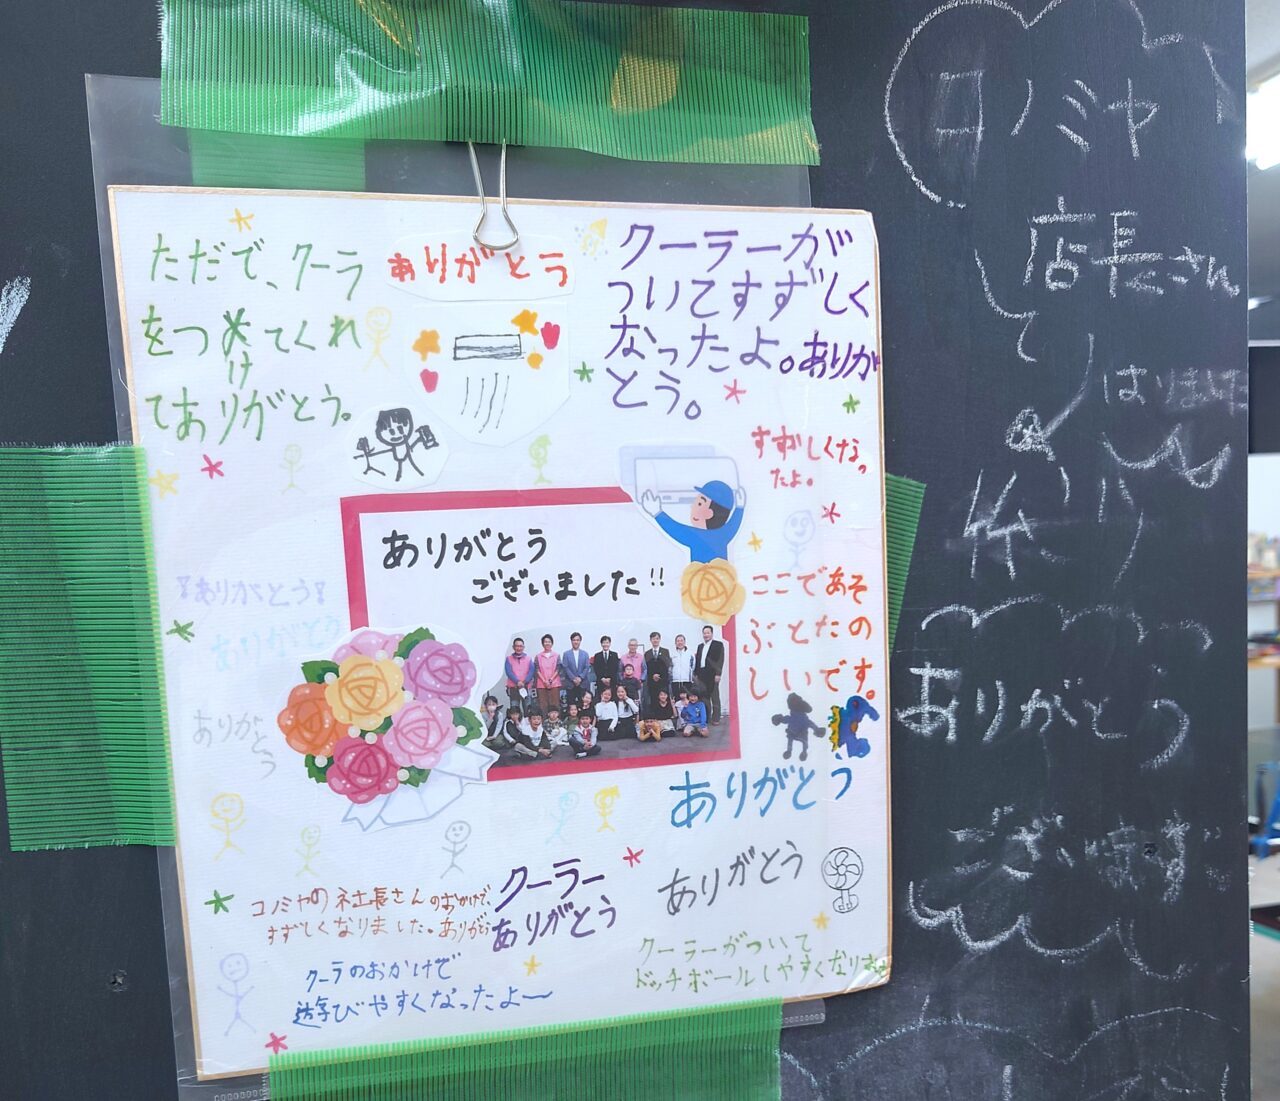 ただで、クーラ
をつけてくれ
てありがとう。
ありがとう
クーラーが
ついてすずしく
なったよ。ありが
とう。
すずしくなっ
たよ。
ありがとう
ございました!!
ここであそ
ぶとたの
しいです。
ありがとう
ありがとう
ありがとう
ありがとう
ありがとう
コノミヤの社長さんのおかげで、
すずしくなりました。ありがとう
クーラー
ありがとう
クーラのおかげで
遊びやすくなったよ〜
クーラーがついて
ドッチボールしやすくなりました
コノミヤ
店長さん
ありがとう
ございます